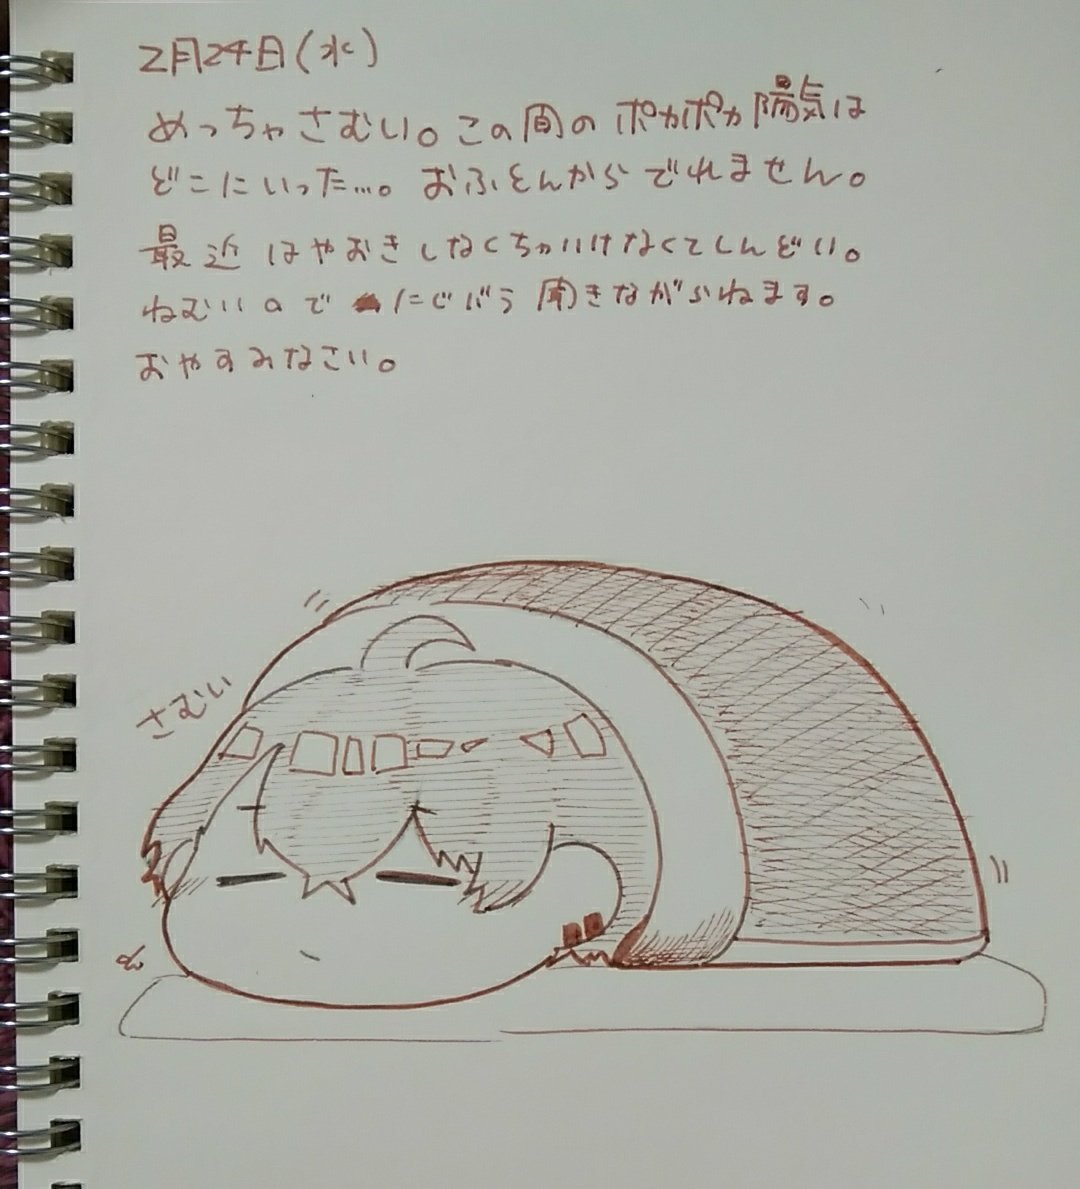 2月24日(水)
めっちゃさむい。この間のポカポカ陽気は
どこにいった…。おふとんからでれません。
最近はやおきしなくちゃいけなくてしんどい。
ねむいのでにじばう聞きながらねます。
おやすみなさい。
さむい